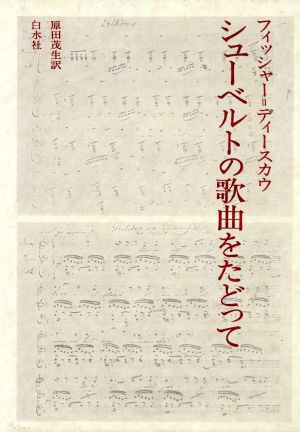 フィッシャー=ディースカウ
シューベルトの歌曲をたどって
原田茂生訳
白水社
Erlkönig